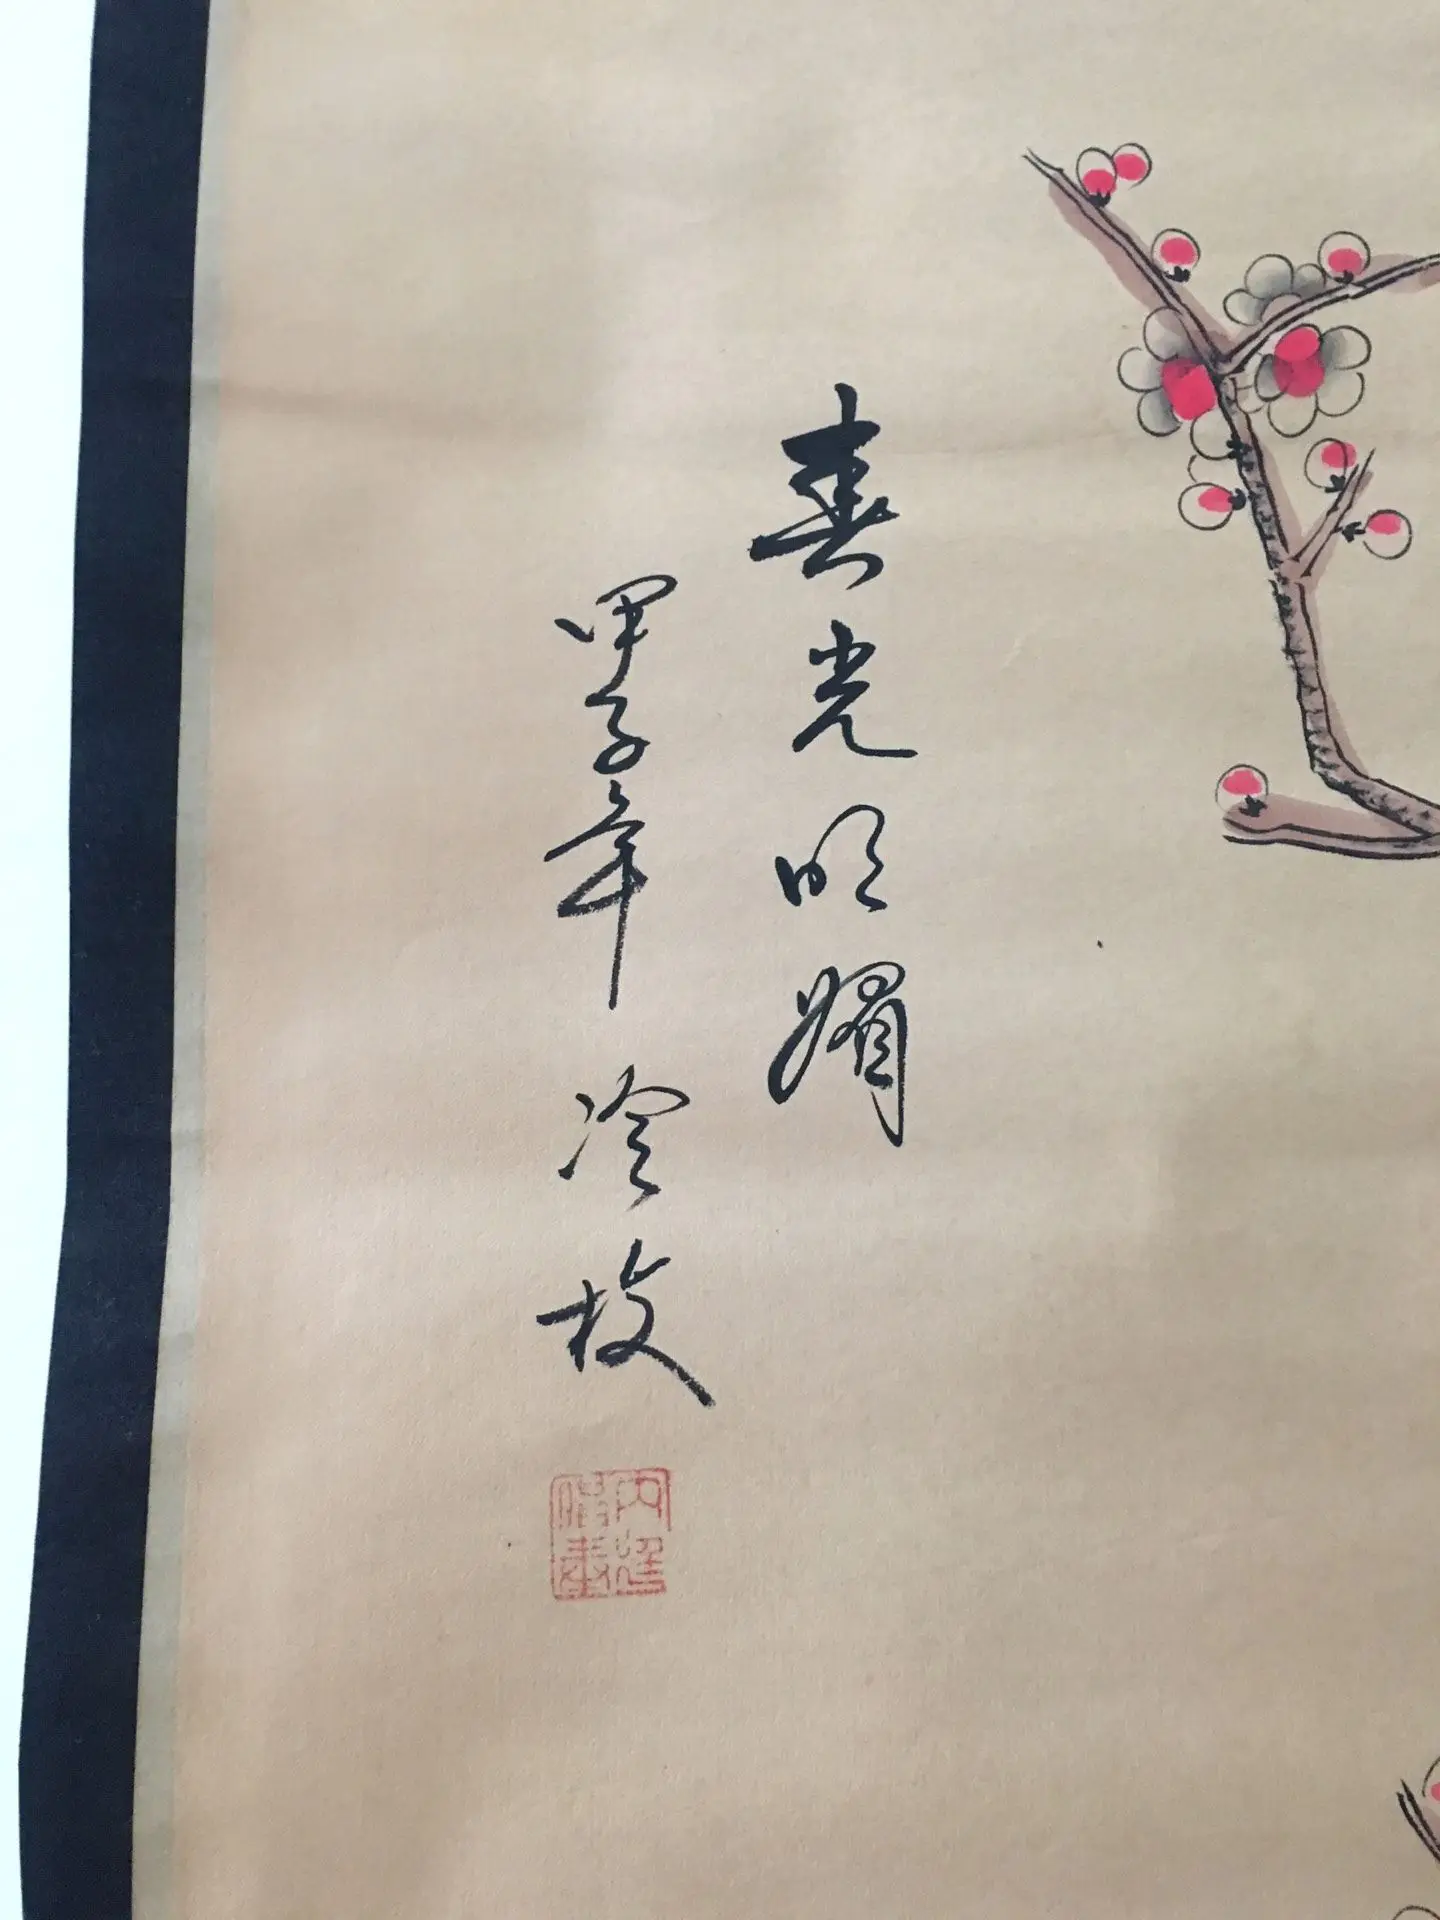 春光明媚
甲子年 冷枚